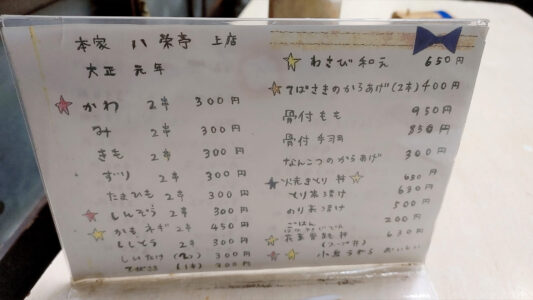 本家 八 栄亭 上店
大正 元年
かわ 2串 300円
み 2串 300円
きも 2串 300円
ずり 2串 300円
たまひも 2串 300円
しんぞう 2串 300円
かもネギ 2串 450円
ししとう 2串 300円
しいたけ 300円
300円
わさび和え 650円
てばさきのからあげ(2本) 400円
骨付もも 950円
骨付手羽 850円
なんこつのからあげ 300円
焼きとり丼 650
とり茶漬け 650
のり茶漬け 500
ごはん 200円
630円